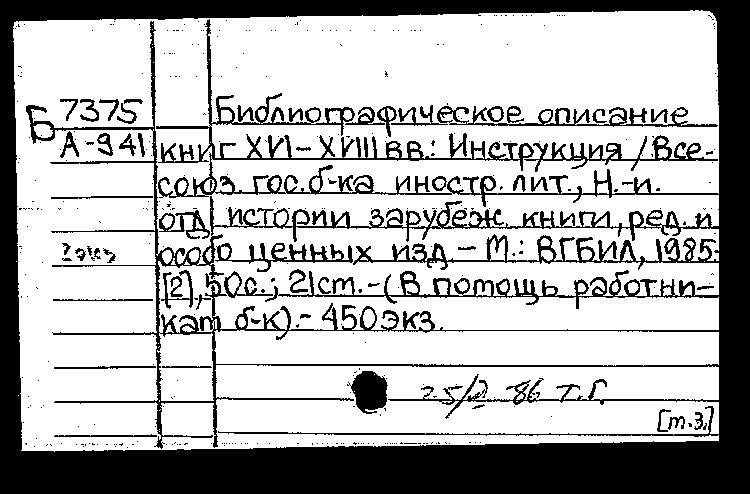 Б 7375
А-941
Библиографическое описание
книг XVI-XVIII вв.: Инструкция / Все-
союз. гос. б-ка иностр. лит., Н.-и.
отд. истории зарубеж. книги, ред. и
особо ценных изд. - М.: ВГБИЛ, 1985.-
[2], 50с.; 21cm. - (В помощь работни-
кам б-к). - 450 экз.
86 т.г.
[т.з.]